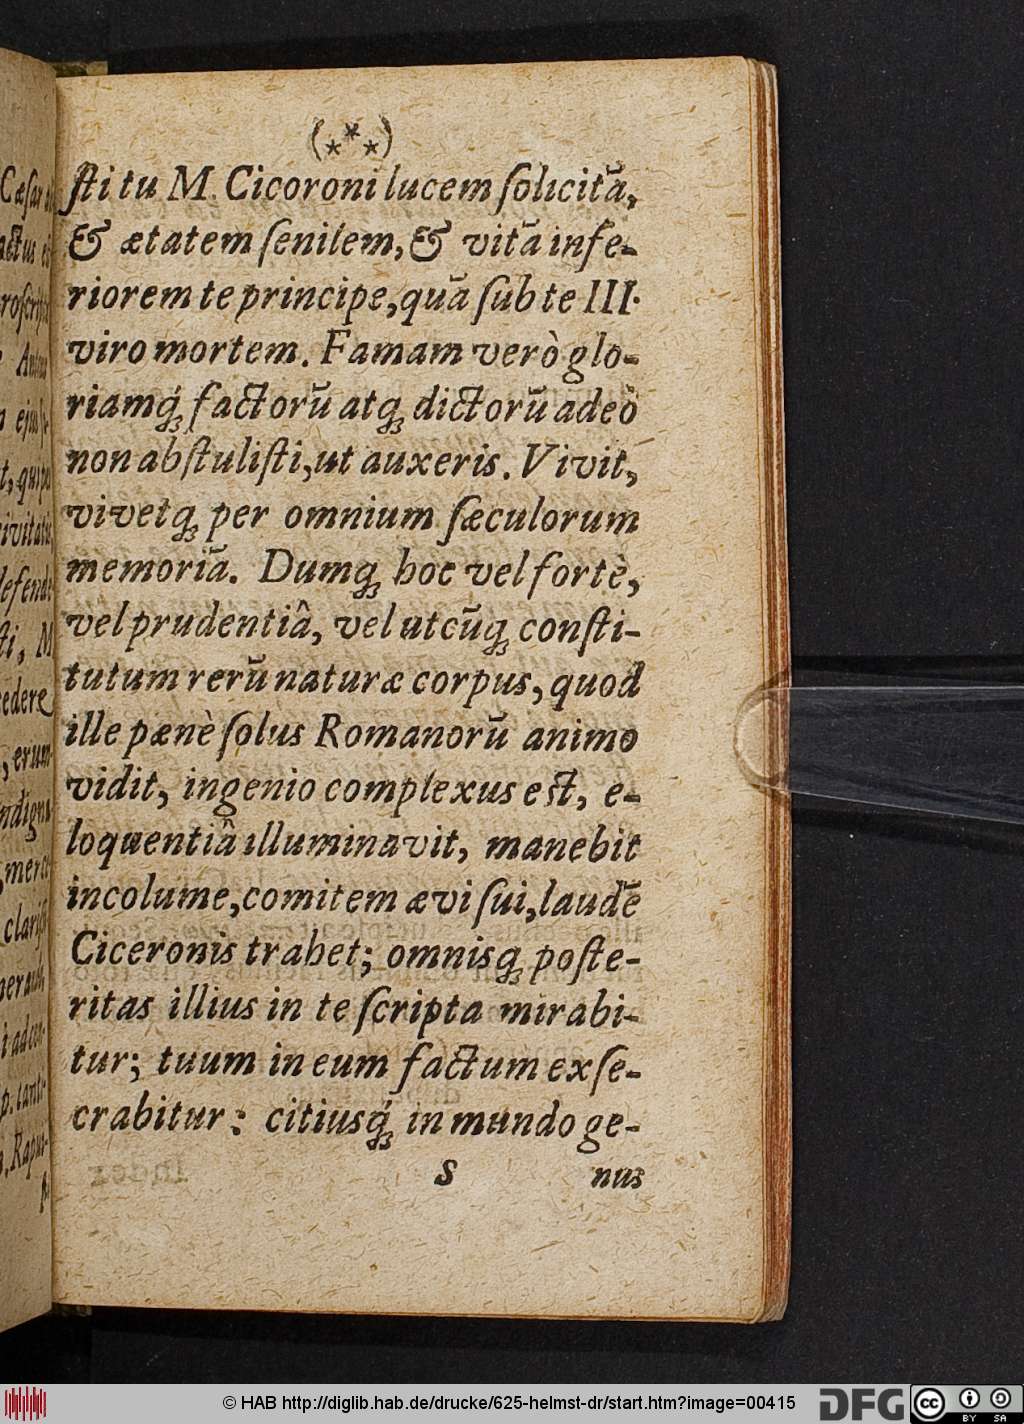 (⁎*⁎)
ſti tu M. Cicoroni lucem ſolicitā,
& ætatem ſenilem, & vitā infe-
riorem te principe, quā ſub te III.
viro mortem. Famam verò glo-
riamq́; factorū atq; dictorū adeò
non abſtuliſti, ut auxeris. Vivit,
vivetq; per omnium ſæculorum
memoriā. Dumq; hoc vel fortè,
vel prudentiâ, vel utcūq; conſti-
tutum rerū naturæ corpus, quod
ille pænè ſolus Romanorū animo
vidit, ingenio complexus eſt, e-
loquentiâ illuminavit, manebit
incolume, comitem ævi ſui, laudē
Ciceronis trahet; omnisq; poſte-
ritas illius in te ſcripta mirabi-
tur; tuum in eum factum exſe-
crabitur: citiusq́; in mundo ge-
S nus
© HAB http://diglib.hab.de/drucke/625-helmst-dr/start.htm?image=00415
DFG
cc BY SA